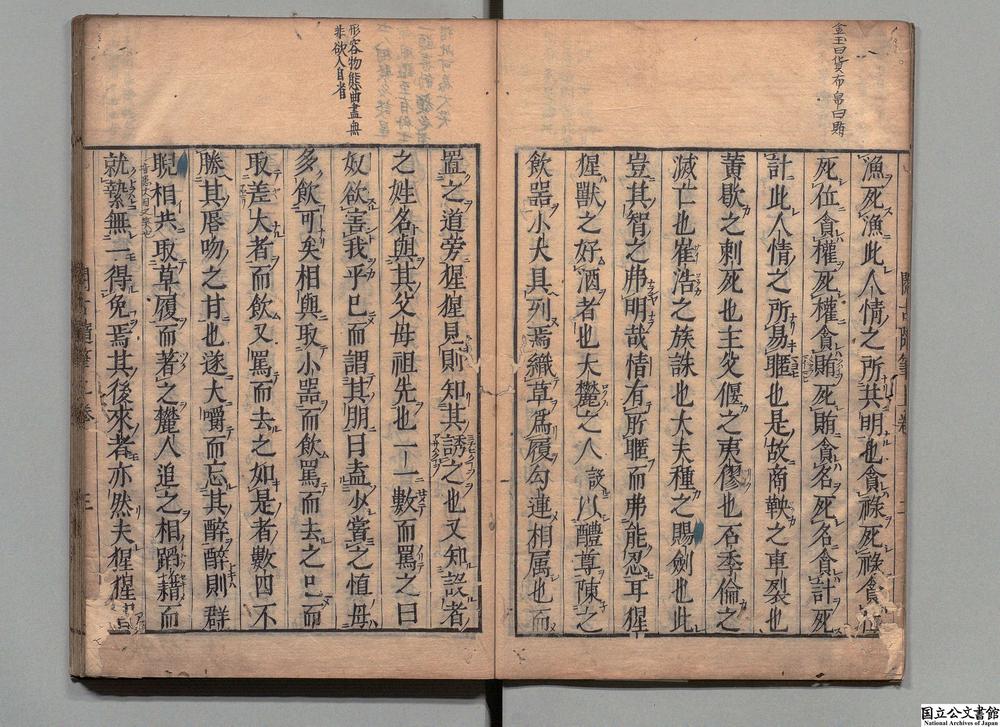 金玉曰貨布帛曰賄
漁死漁此人情之所共明也貪祿死祿貪位
死位貪權死權貪賄死賄貪名死名貪計死
計此人情之所易暱也是故商鞅之車裂也
黃歇之刺死也主父偃之夷僇也石季倫之
滅亡也崔浩之族誅也大夫種之賜劍也此
豈其智之弗明哉情有所暱而弗能忍耳猩
猩獸之好酒者也大麓之人設以醴尊陳之
飲器小大具列焉織草為履勾連相属也而
形容物態曲盡無
非欲人自省
置之道旁猩猩見則知其誘之也又知設者
之姓名與其父母祖先也一一數而罵之曰
奴欲害我乎已而謂其朋曰盍少嘗之慎毋
多飲可矣相與取小器而飲罵而去之已而
取差大者而飲又罵而去之如是者數四不
勝其唇吻之甘也遂大嚼而忘其醉醉則群
睨相共取草履而著之麓人追之相蹈藉而
就縶無一得免焉其後來者亦然夫猩猩
国立公文書館
National Archives of Japan